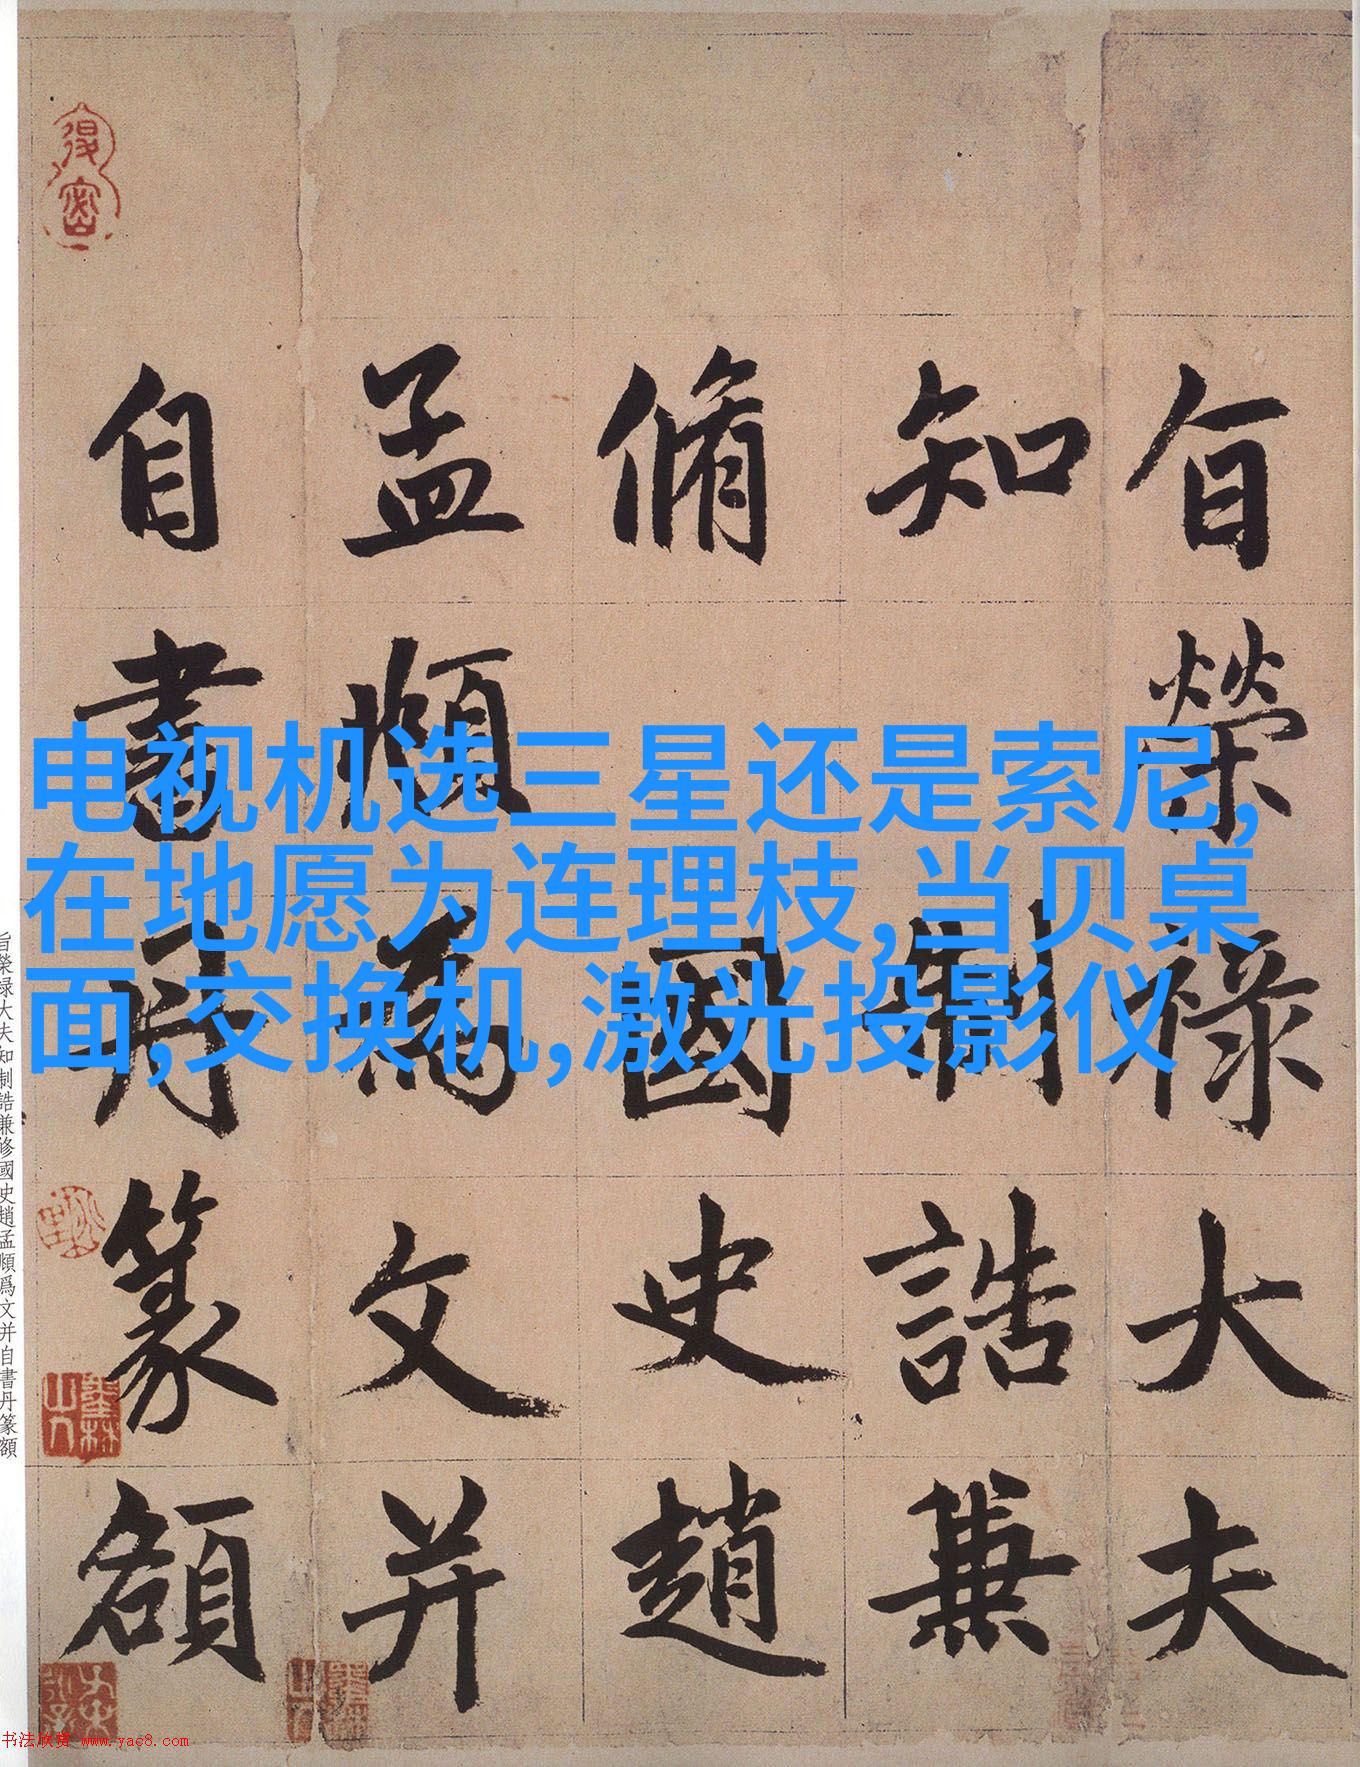 旨榮祿大夫
知制誥兼
脩國史趙
孟頫為文并
自書丹篆額
电视机选三星还是索尼,
在地愿为连理枝,当贝桌
面,交换机,激光投影仪
旨榮祿大夫知制誥兼修國史趙孟頫爲文并自書丹篆額
书法欣赏 www.yac8.com